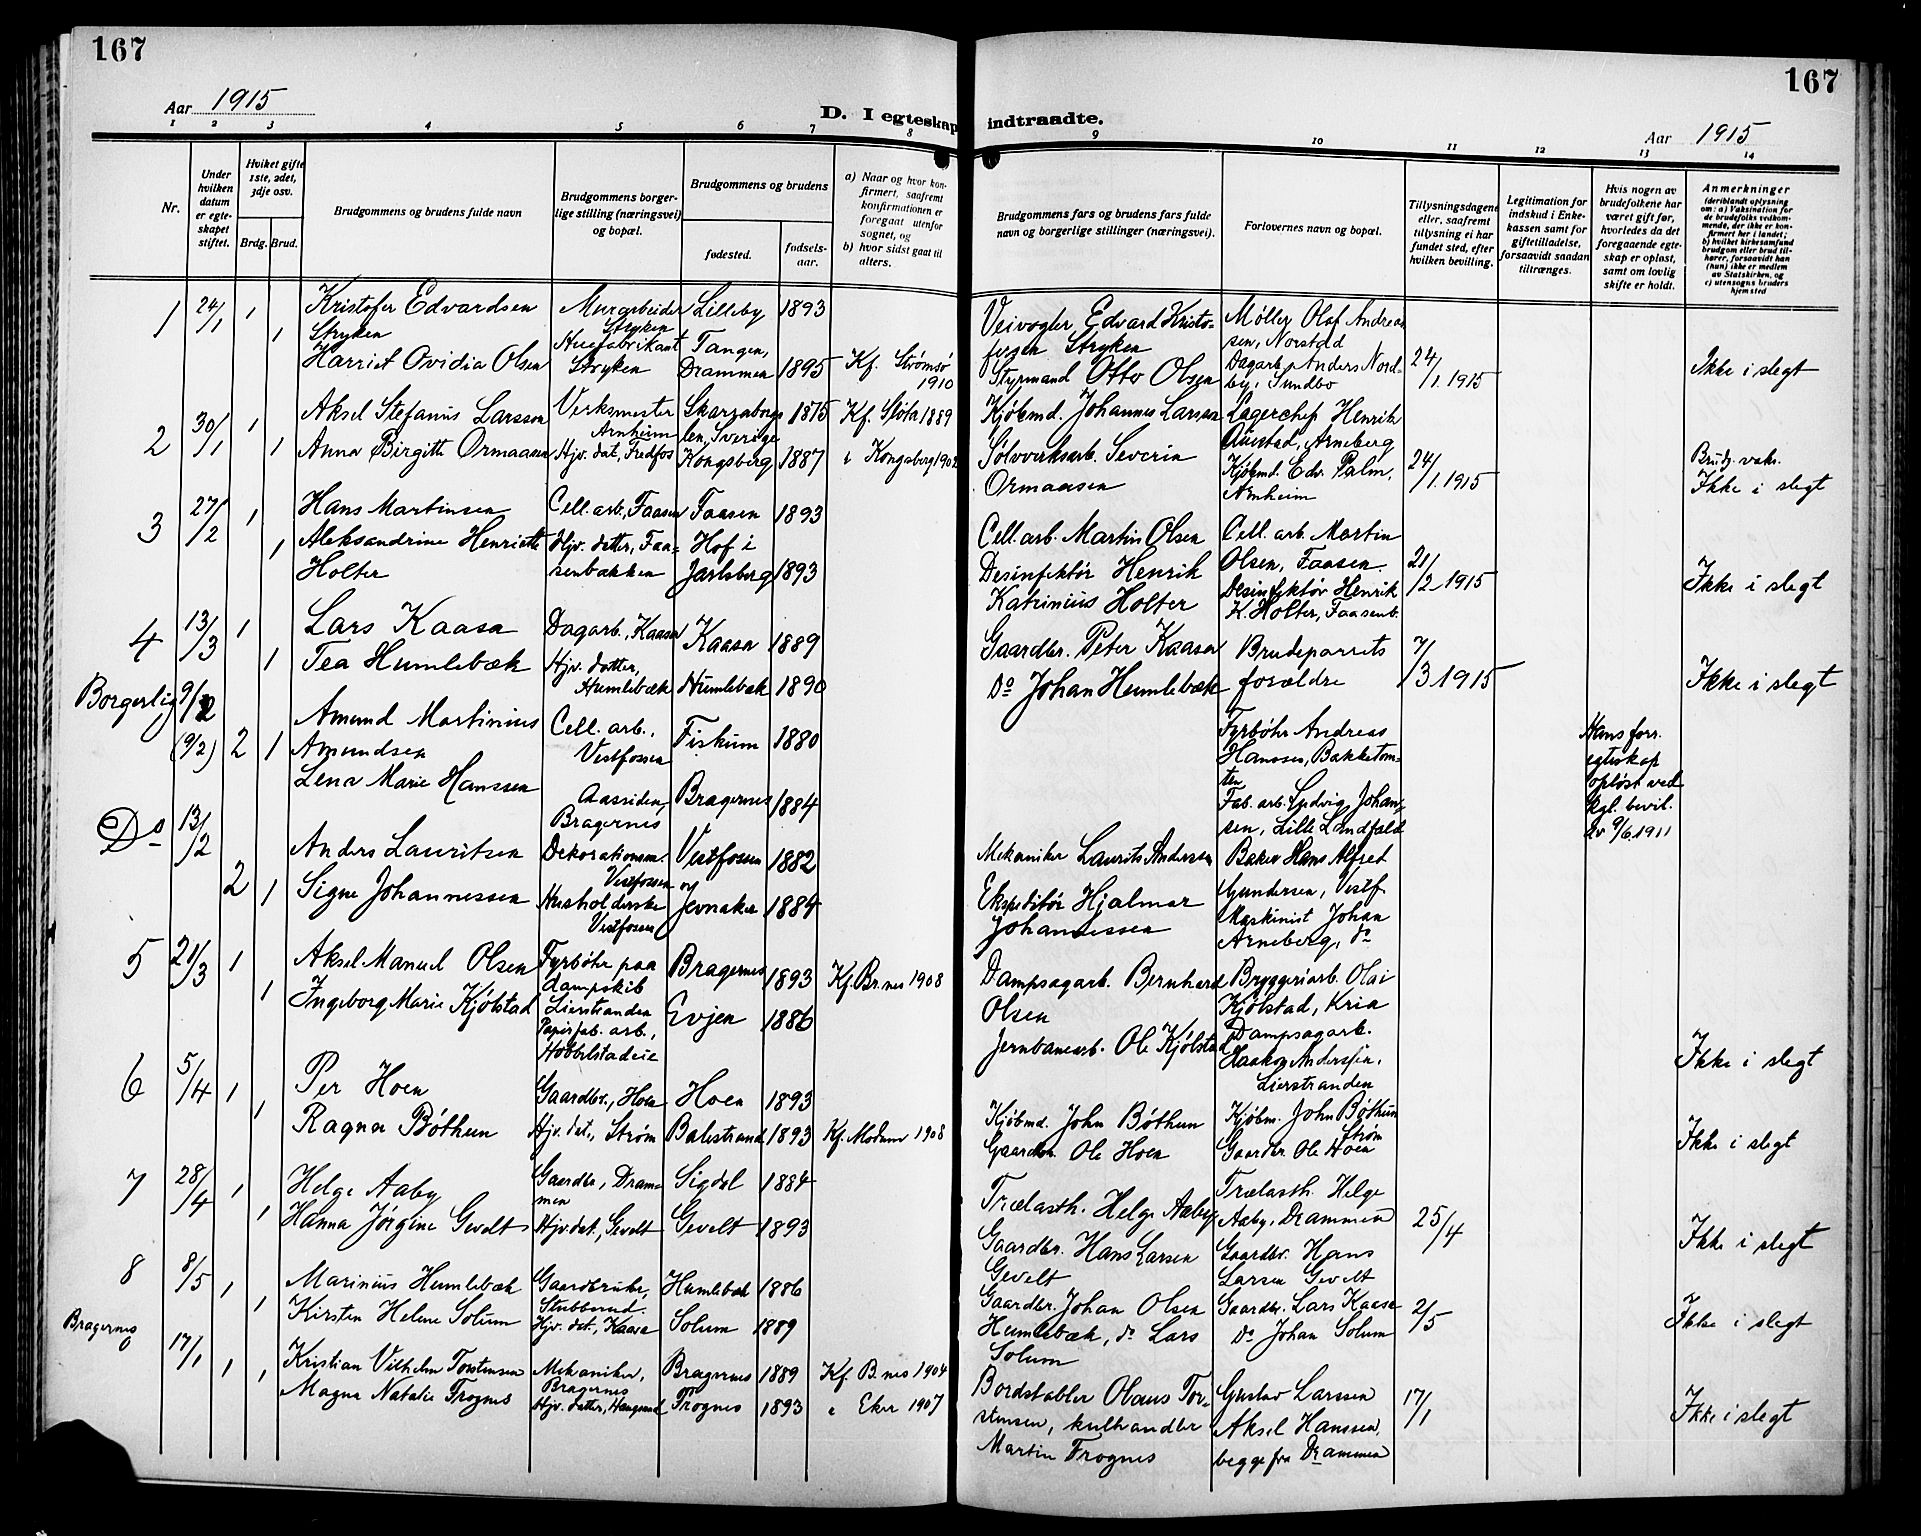 167
Aar 1915
D. I egteskap
1 2 3 4 5 6 7 8
Nr.
Under hvilken datum er egteskapet stiftet.
Hvilket gifte 1ste, 2det, 3dje osv.
Brdg. Brud.
Brudgommens og brudens fulde navn
Brudgommens borgerlige stilling (næringsvei) og bopæl.
Brudgommens og brudens
fødested.
fødselsaar.
a) Naar og hvor konfirmert, saafremt konfirmationen er foregaat utenfor sognet, og
b) hvor sidst gaat til alters.
1 24/1 1 Kristofer Edvardsen Murarbeider Lilleby 1893
Stryken Stryken
1 Harriet Ovidia Olsen Stryken Tangen, Drammen 1895 Kf. Strømsø 1910
2 30/1 1 Aksel Stefanus Larsson Verksmester Arnheim Skarzaborgs len, Sverige 1875 Kf. Slöta 1889
1 Anna Birgitte Ormaasen Hjv. dat, Fredfos Kongsberg 1887 " Kongsberg 1902
3 27/2 1 Hans Martinsen Cell. arb., Faasen Faasen 1893
1 Aleksandrine Henriette Holter Hjv. datter, Faasenbakken Hof i Jarlsberg 1893
4 13/3 1 Lars Kaasa Dagarb., Kaasa Kaasa 1889
1 Tea Humlebæk Hjv. datter, Humlebæk Humlebæk 1890
Borgerlig 9/2
(9/2) 2 1 Amund Martinius Amundsen Cell. arb., Vestfossen Fiskum 1880
Lena Marie Hanssen Aassiden, Bragernes Bragernes 1884
Do 13/2 Anders Lauritsen Dekorationsm. Vestfossen Vestfossen 1882
2 1 Signe Johannessen Husholderske Vestfossen Jevnaker 1884
5 21/3 1 Aksel Manuel Olsen Fyrbøter paa dampskib Lierstranden Bragernes 1893 Kf. Br.nes 1908
1 Ingeborg Marie Kjølstad Papirfab. arb., Hobbelstadeie Evjen 1886
6 5/4 1 Per Hoen Gaardbr., Hoen Hoen 1893
1 Ragna Bøthun Hjv. dat., Strøm Balestrand 1893 Kf. Modum 1908
7 28/4 1 Helge Aaby Gaardbr., Drammen Sigdal 1884
1 Hanna Jørgine Gevelt Hjv. dat., Gevelt Gevelt 1893
8 8/5 1 Marinius Humlebæk Gaardbruker, Stubberud. Humlebæk 1886
1 Kirsten Helene Solum Hjv. dat., Kaasa Solum 1889
Bragernes 17/1 1 Kristian Vilhelm Torstensen Mekaniker, Bragernes Bragernes 1889 Kf. B.nes 1904
1 Magna Natalie Frognes Hjv. datter, Frognes 1893 " Eker 1907
167
indtraadte.
Aar 1915
9 10 11 12 13 14
Brudgommens fars og brudens fars fulde navn og borgerlige stillinger (næringsvei).
Forlovernes navn og bopæl.
Tillysningsdagene eller, saafremt tillysning ei har fundet sted, efter hvilken bevilling.
Legitimation for indskud i Enkekassen samt for giftetilladelse, forsaavidt saadan tiltrænges.
Hvis nogen av brudefolkene har været gift før, hvorledes da det foregaaende egteskap er opløst, samt om lovlig skifte er holdt.
Anmerkninger (deriblandt oplysning om: a) Vaksination for de brudefolks vedkommende, der ikke er konfirmert her i landet; b) hvilket kirkesamfund brudgom eller brud tilhører, forsaavidt han (hun) ikke er medlem av Statskirken, og c) utensogns bruders hjemsted
Veivogter Edvard Kristofersen Stryken Møller Olaf Andreassen, Norstad
Styrmand Otto Olsen Dagarb. Anders Nordby, Sundbo 24/1.1915 Ikke i slegt
Kjøbmd. Johannes Larsen Lagerchef Henrik Arneberg
Sølvverksarb. Severin Ormaasen Kjøbmd. Edv. Palm, Arnheim 24/1.1915 Brudg. vaks. Ikke i slegt
Cell. arb. Martin Olsen Cell. arb. Martin Olsen, Faasen.
Desinfektør Henrik Katrinius Holter Desinfektør Henrik K. Holter, Faasenb. 21/2 1915 Ikke i slegt
Gaardbr. Peter Kaasa Brudeparrets 7/3.1915
Do Johan Humlebæk forældre Ikke i slegt
Fyrbøter Andreas Hansen, Bakketomten
Fab. arb. Ludvig Johansen, Lille Landfald
Hans forr. egteskap opløst ved kgl. bevil. av 9/6.1911
Mekaniker Laurits Andersen Baker Hans Alfred Gundersen, Vestf.
Ekspeditør Hjalmar Johannessen Maskinist Johan Arneberg, do
Dampsagarb. Bernhard Olsen Bryggeriarb. Olai Kjølstad, Kria
Jernbanearb. Ole Kjølstad Dampsagarb. Haakon Anderssen, Lierstranden Ikke i slegt
Kjøbmd. John Bøthun Kjøbm. John Bøthun Strøm
Gaardbr. Ole Hoen Gaardbr. Ole Hoen Ikke i slegt
Trælasth. Helge Aaby Trælasth. Helge Aaby, Drammen 25/4
Gaardbr. Hans Larsen Gevelt Gaardbr. Hans Larsen Gevelt Ikke i slegt
Gaardbr. Johan Olsen Humlebæk, do Lars Solum Gaardbr. Lars Kaasa Do Johan Solum 2/5 Ikke i slegt
Bordstabler Olaus Torstensen, kulhandler Martin Frognes Gustav Larssen Aksel Hanssen, begge fra Drammen 17/1 Ikke i slegt